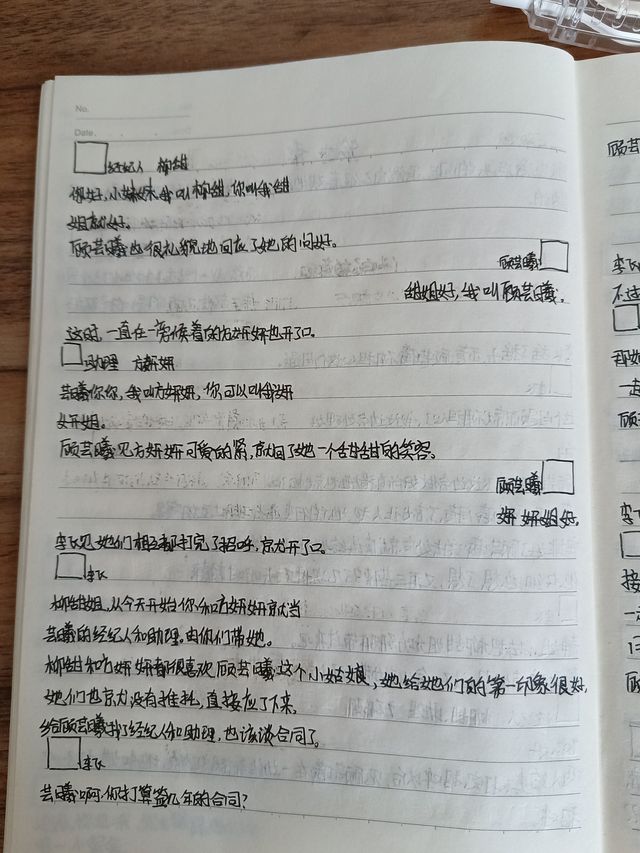 No.
Date.
经纪人 柳甜
你好,小妹妹我叫柳甜,你叫我甜
姐就好。
顾芸曦也很礼貌地回应了她的问好。
顾芸曦
甜姐好,我叫顾芸曦。
这时,一直在一旁候着的方妍妍也开了口。
助理 方妍妍
芸曦你你,我叫方妍妍,你可以叫我妍
妍姐。
顾芸曦见方妍妍可爱的紧,就回了她一个甜甜的笑容。
顾芸曦
妍妍姐好。
李氏见她们相互都打完了招呼,就开了口。
李氏
柳甜姐,从今天开始你和方妍妍就当
芸曦的经纪人和助理,由你们带她。
柳甜和方妍妍都很喜欢顾芸曦这个小姑娘,她给她们的第一印象很好,
她们也就没有推托,直接应了下来。
给顾芸曦找了经纪人和助理,也该谈合同了。
李氏
芸曦啊,你打算签几年的合同?
顾芸
李氏
不过
那她
一起
顾
李氏
接
一
顾